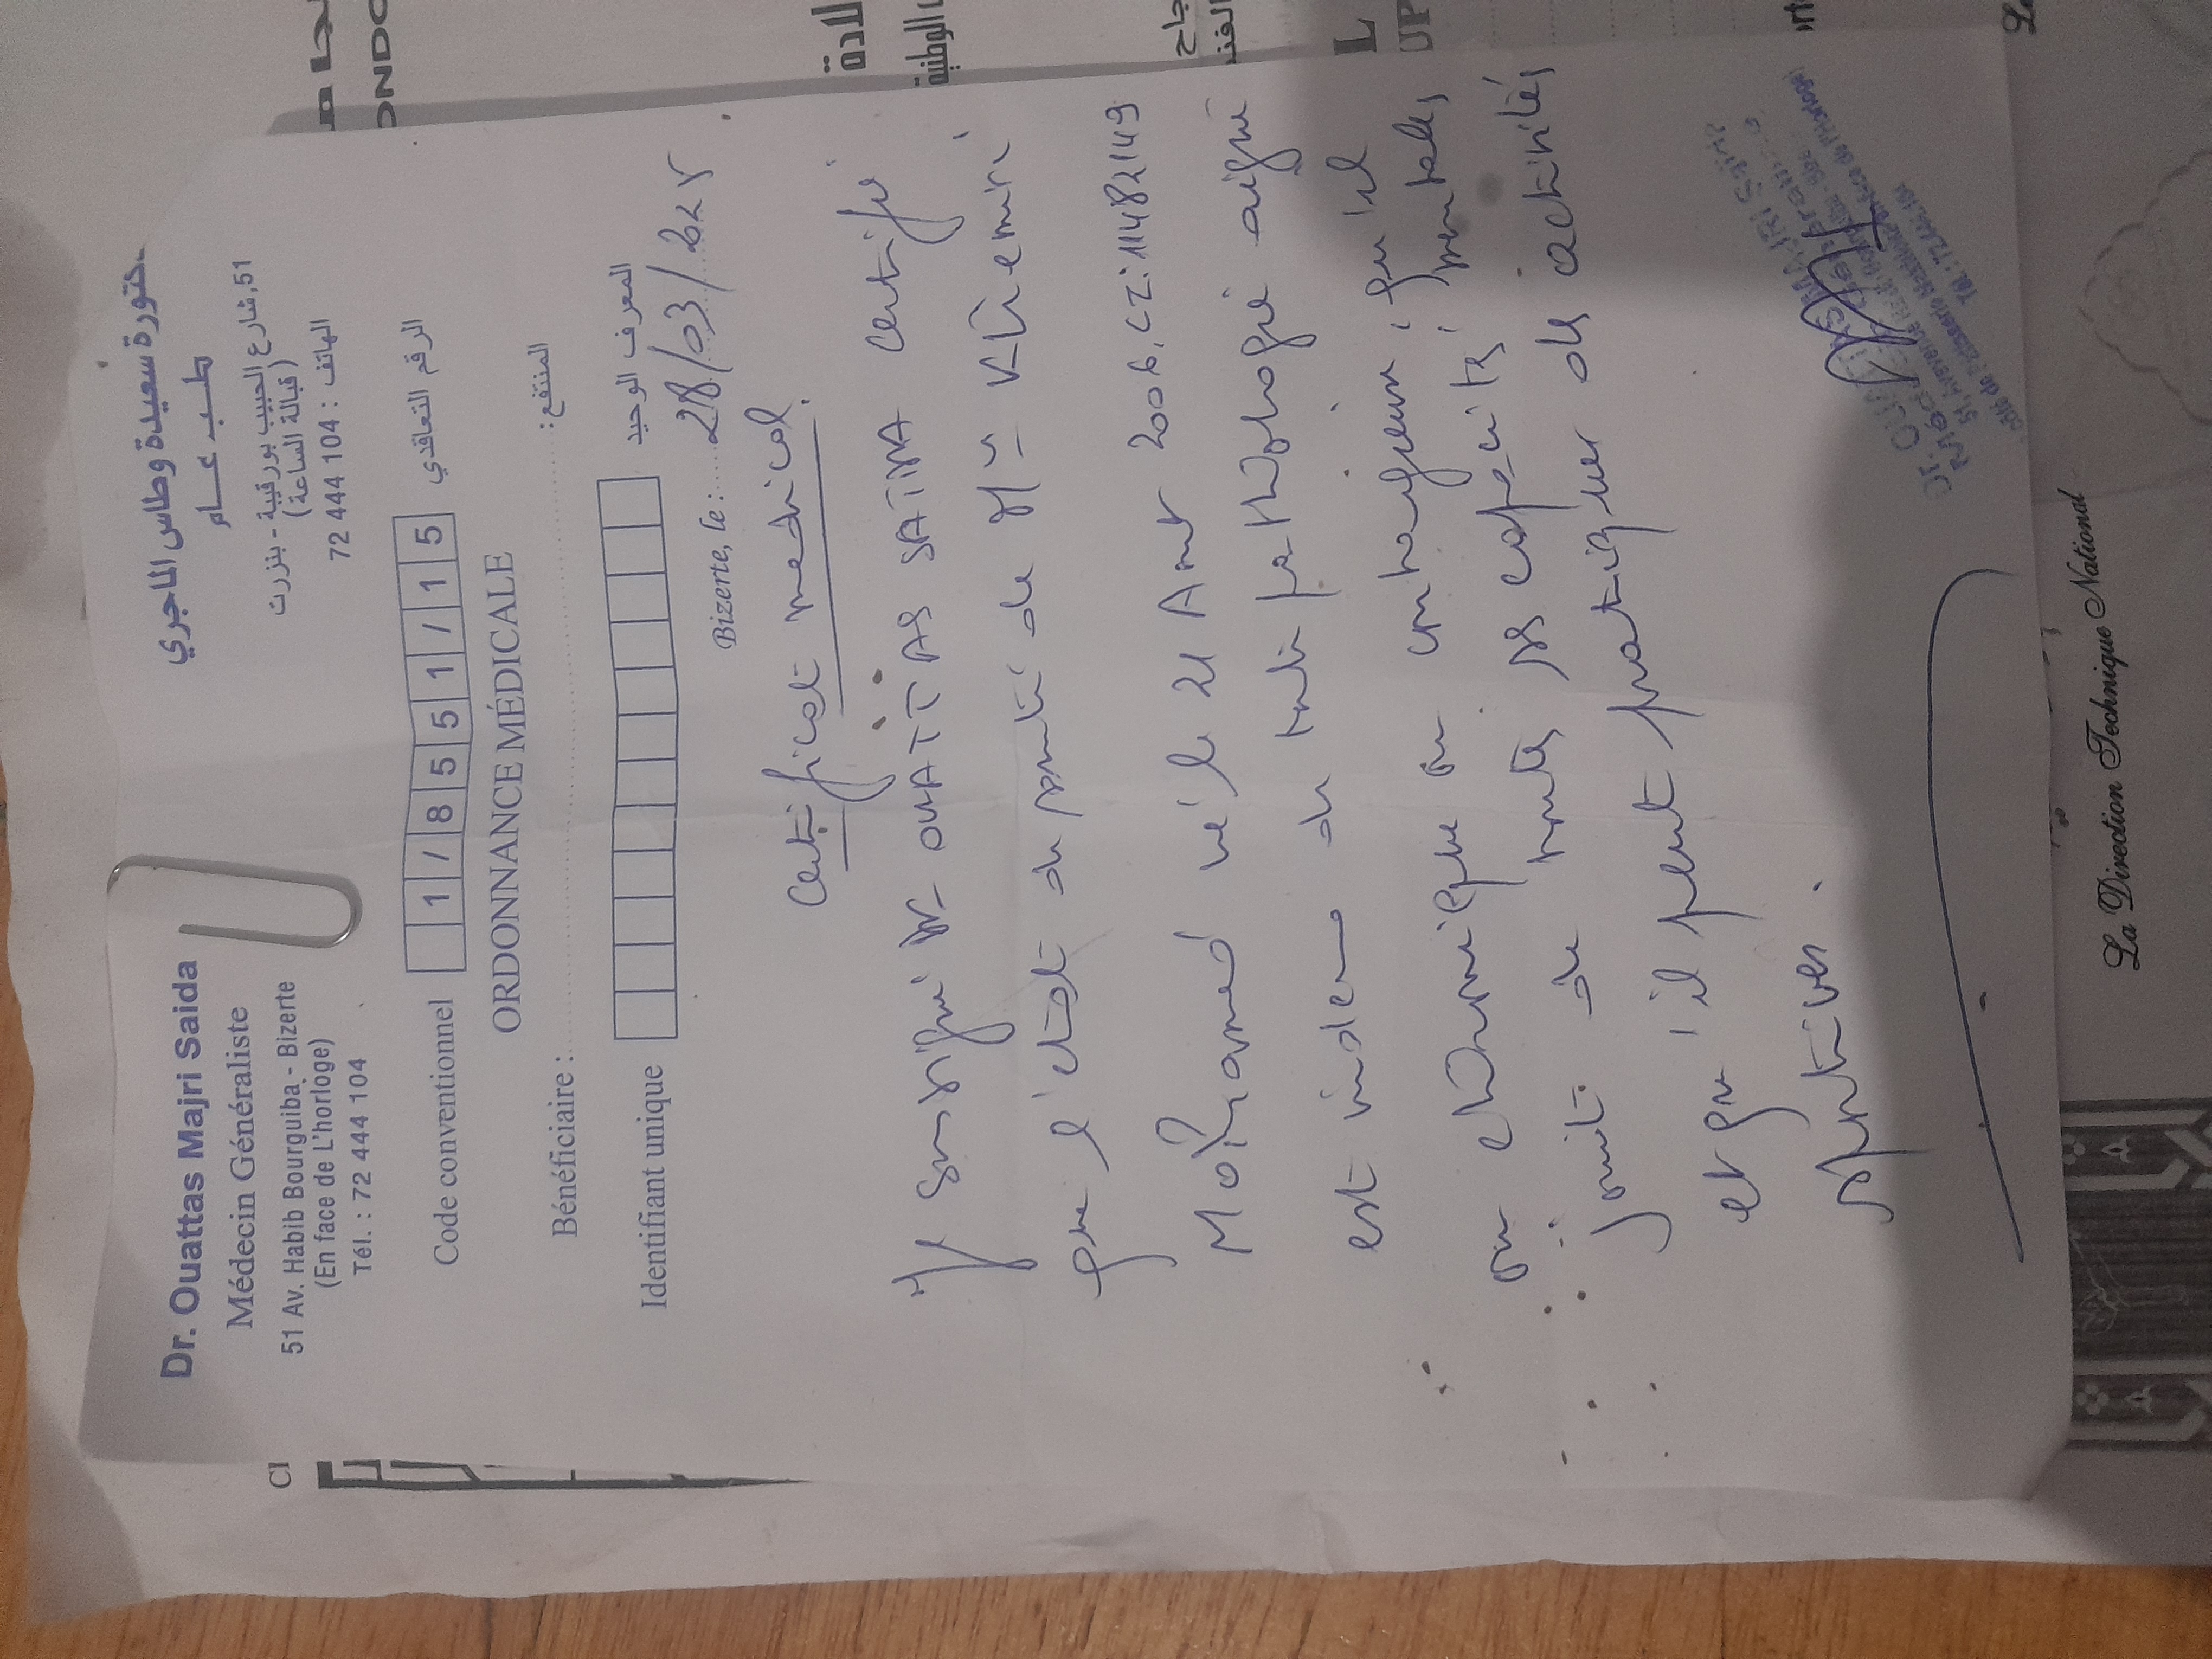 Dr. Ouattas Majri Saida
Médecin Généraliste
51 Av. Habib Bourguiba - Bizerte
(En face de L'horloge)
Tél. : 72 444 104
سعيدة وطاس الماجري
طب عام
51, شارع الحبيب بورقيبة - بنزرت
(قبالة الساعة)
الهاتف : 104 444 72
Code conventionnel 1 / 8 5 5 1 / 1 5 الرقم التعاقدي
ORDONNANCE MÉDICALE
Bénéficiaire : المنتفع :
Identifiant unique المعرف الوحيد
Bizerte, le : 28/03/2025
Certificat medical
Je soussigné Dr OUATTAS SAIDA certifie
que l'état de santé de Mr Khemiri
Mohamed né le 21 Aout 2006, CI: 11482149
est indemne de toute pathologie aigue
ou chronique ou contagieuse, qu'il
jouit de toutes ses capacités mentales
et qu'il peut pratiquer des activités
sportives.
Dr. OUATTAS MAJRI Saida
Tél. : 72.444.104
La Direction Technique National